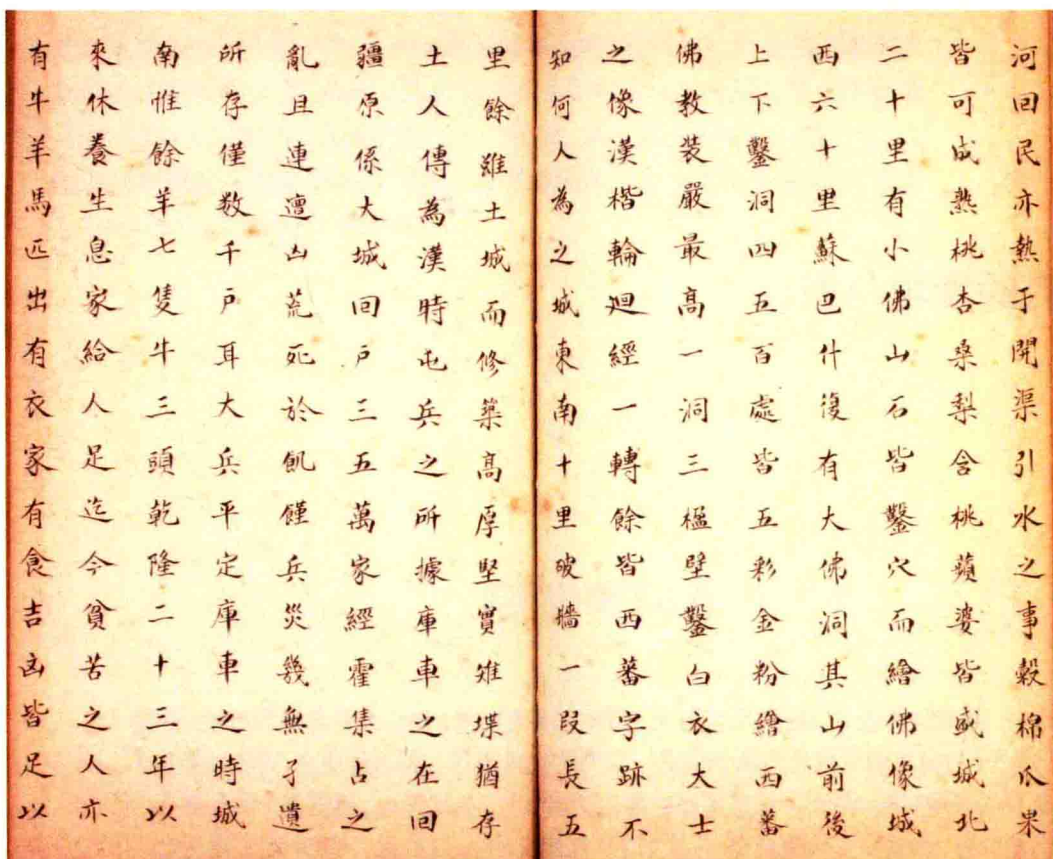 河回民亦熱于開渠引水之事穀棉瓜果
皆可成熟桃杏桑梨含桃蘋婆皆盛城北
二十里有小佛山石皆鑿穴而繪佛像城
西六十里蘇巴什復有大佛洞其山前後
上下鑿洞四五百處皆五彩金粉繪西蕃
佛教裝嚴最高一洞三楹壁鑿白衣大士
之像漢楷輪迴經一轉餘皆西蕃字跡不
知何人為之城東南十里破牆一段長五
里餘雖土城而修築高厚堅實雉堞猶存
土人傳為漢時屯兵之所據庫車之在回
疆原係大城回戶三五萬家經霍集占之
亂且連遭凶荒死於飢饉兵災幾無孑遺
所存僅数千戶耳大兵平定庫車之時城
南惟餘羊七隻牛三頭乾隆二十三年以
來休養生息家給人足迄今貧苦之人亦
有牛羊馬匹出有衣家有食吉凶皆足以